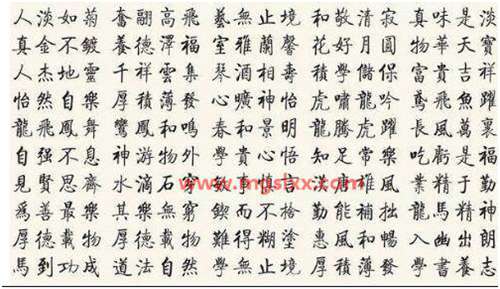 人淡如菊 奮翮高飛 藝無止境 和敬清寂 真味是淡
真金不鍍 養德澤福 室雅蘭馨 花好月圓 物華天寶
人杰地靈 千祥雲集 琴 相壽 學儲 富貴吉祥
怡然自樂 厚積薄發 曠神怡 虎嘯龍吟 鳶飛魚躍
龍飛鳳舞 鸞鳳和鳴 春和景明 龍騰虎躍 長風萬裏
自强不息 神游物外 學貴心悟 知足常樂 吃虧是福
見賢思齊 水滴石穿 大唐雄風 業精于勤
為善最樂 其樂無窮 鍥而不 勤能補拙 龍馬精神
厚德載物 厚德載物 難得糊塗 惠風和暢 入幽出朗
馬到功成 道法自然 學無止境 厚積薄發 學書養志
www.mgslxx.com